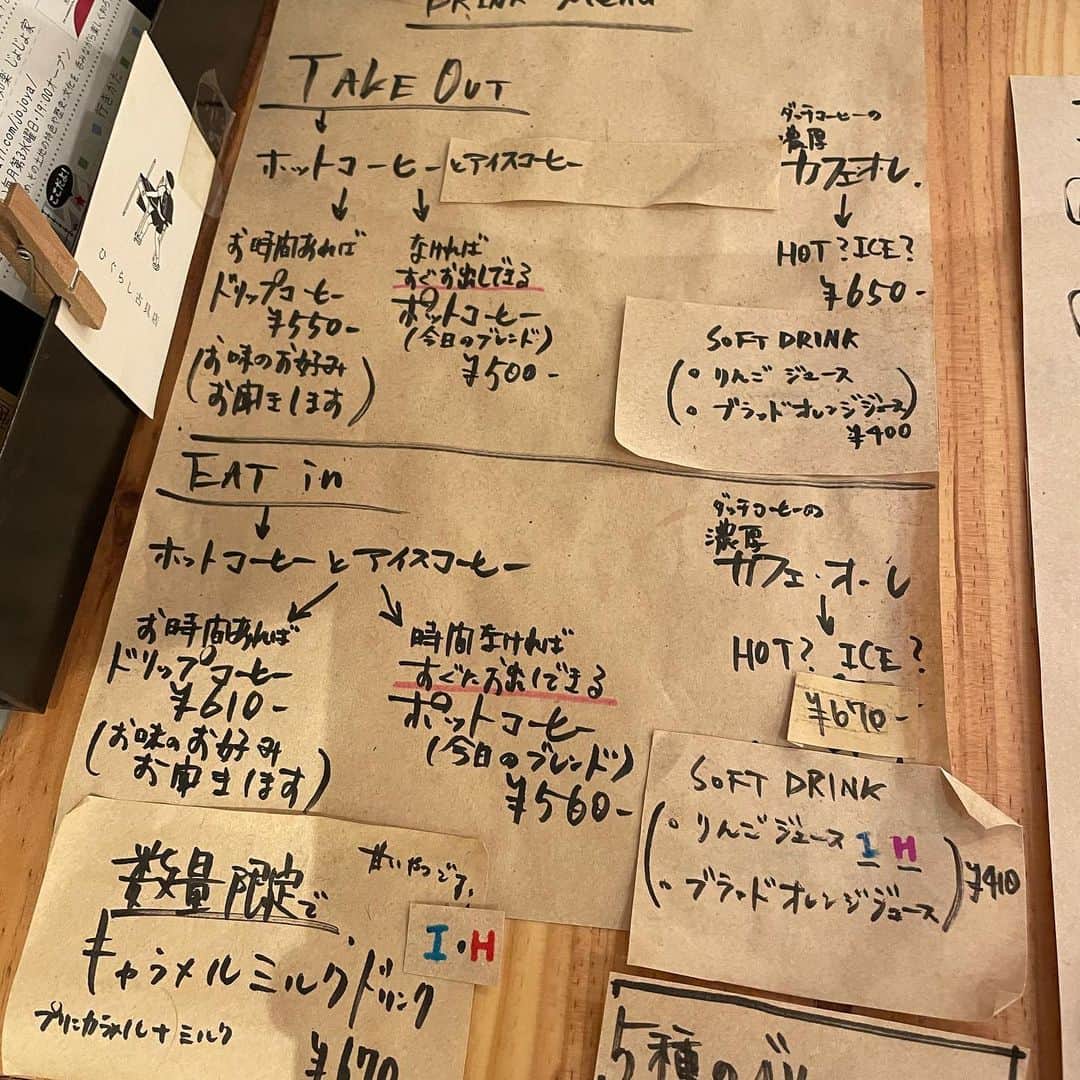 DRINK Menu
TAKE OUT
ホットコーヒーとアイスコーヒー
お時間あれば
ドリップコーヒー
¥550-
(お味のお好み
お聞きします)
なければ
すぐお出しできる
ポットコーヒー
(今日のブレンド)
¥500-
ダッチコーヒーの
濃厚
カフェオレ.
HOT?ICE?
¥650-
SOFT DRINK
(。りんごジュース
。ブラッドオレンジジュース)
¥400
EAT in
ホットコーヒーとアイスコーヒー
お時間あれば
ドリップコーヒー
¥610-
(お味のお好み
お聞きします)
時間なければ
すぐにお出しできる
ポットコーヒー
(今日のブレンド)
¥560-
ダッチコーヒーの
濃厚
カフェ・オーレ
HOT? ICE?
¥670-
SOFT DRINK
(。りんごジュース I H
。ブラッドオレンジジュース) ¥410
数量限定で
甘いやつです.
キャラメルミルクドリンク
I・H
プリンカラメル+ミルク
¥670
5種の
ひぐらし古具店
じょじょ家
.com/jojoya/
毎月第3水曜日・19:00オープン
行きかた
ここだよ!